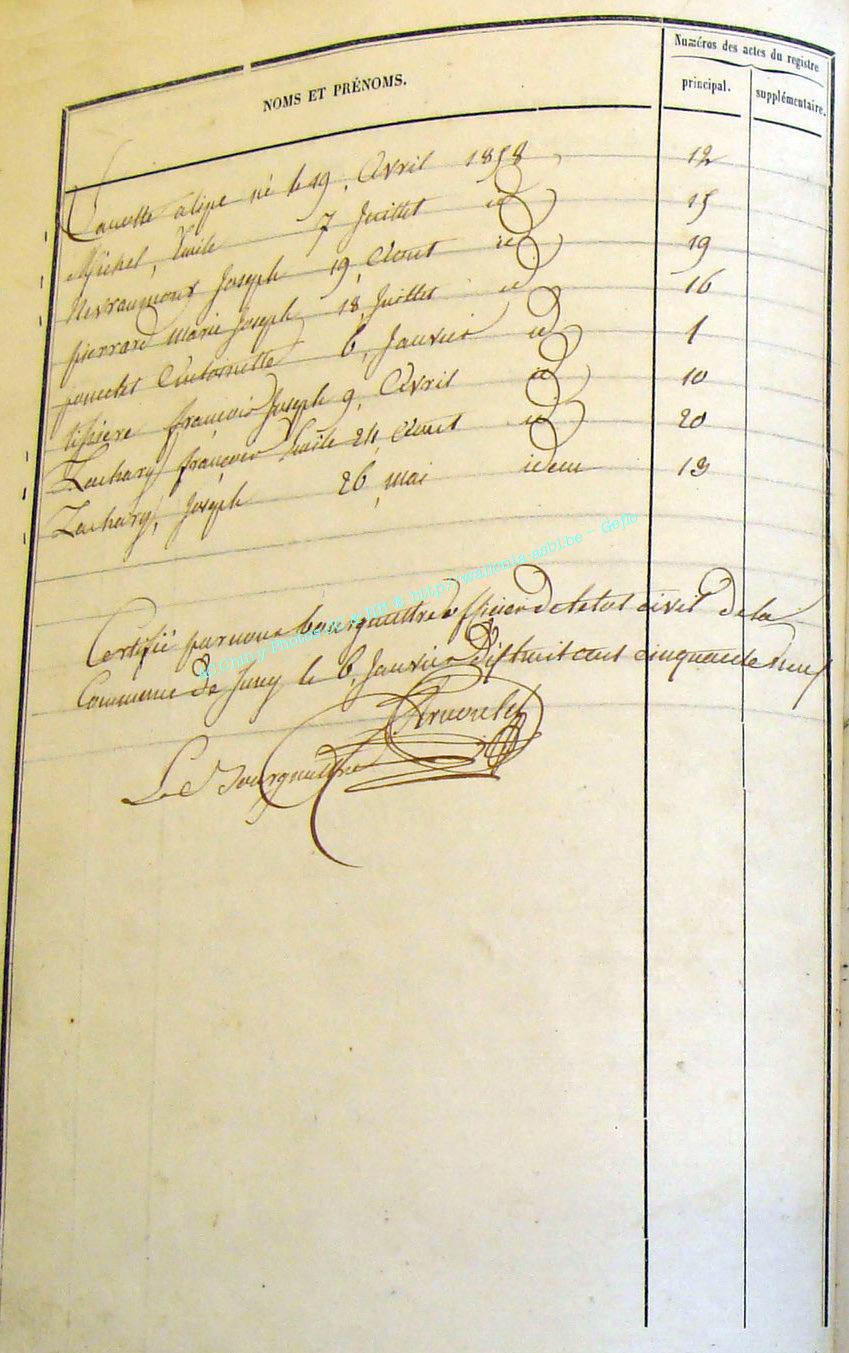 NOMS ET PRÉNOMS.
Numéros des actes du registre
principal.
supplémentaire.
alipe né le 19, Avril 1858 12
Michel, Emile 7 Juillet id 15
Nevraumont Joseph 19, Aout id 19
pierrard Marie Joseph 18, Juillet id 16
poncelet Antoinette 6, Janvier id 1
françois Joseph 9, Avril id 10
Zachary françois Emile 24, Aout id 20
Zachary, Joseph 26, mai idem 13
Certifié par nous bourgmestre officier de l'etat civil de la
Commune de le 6, Janvier dix huit cent cinquante neuf
Le Bourgmestre
http://wallonia-asbl.be - Geflo